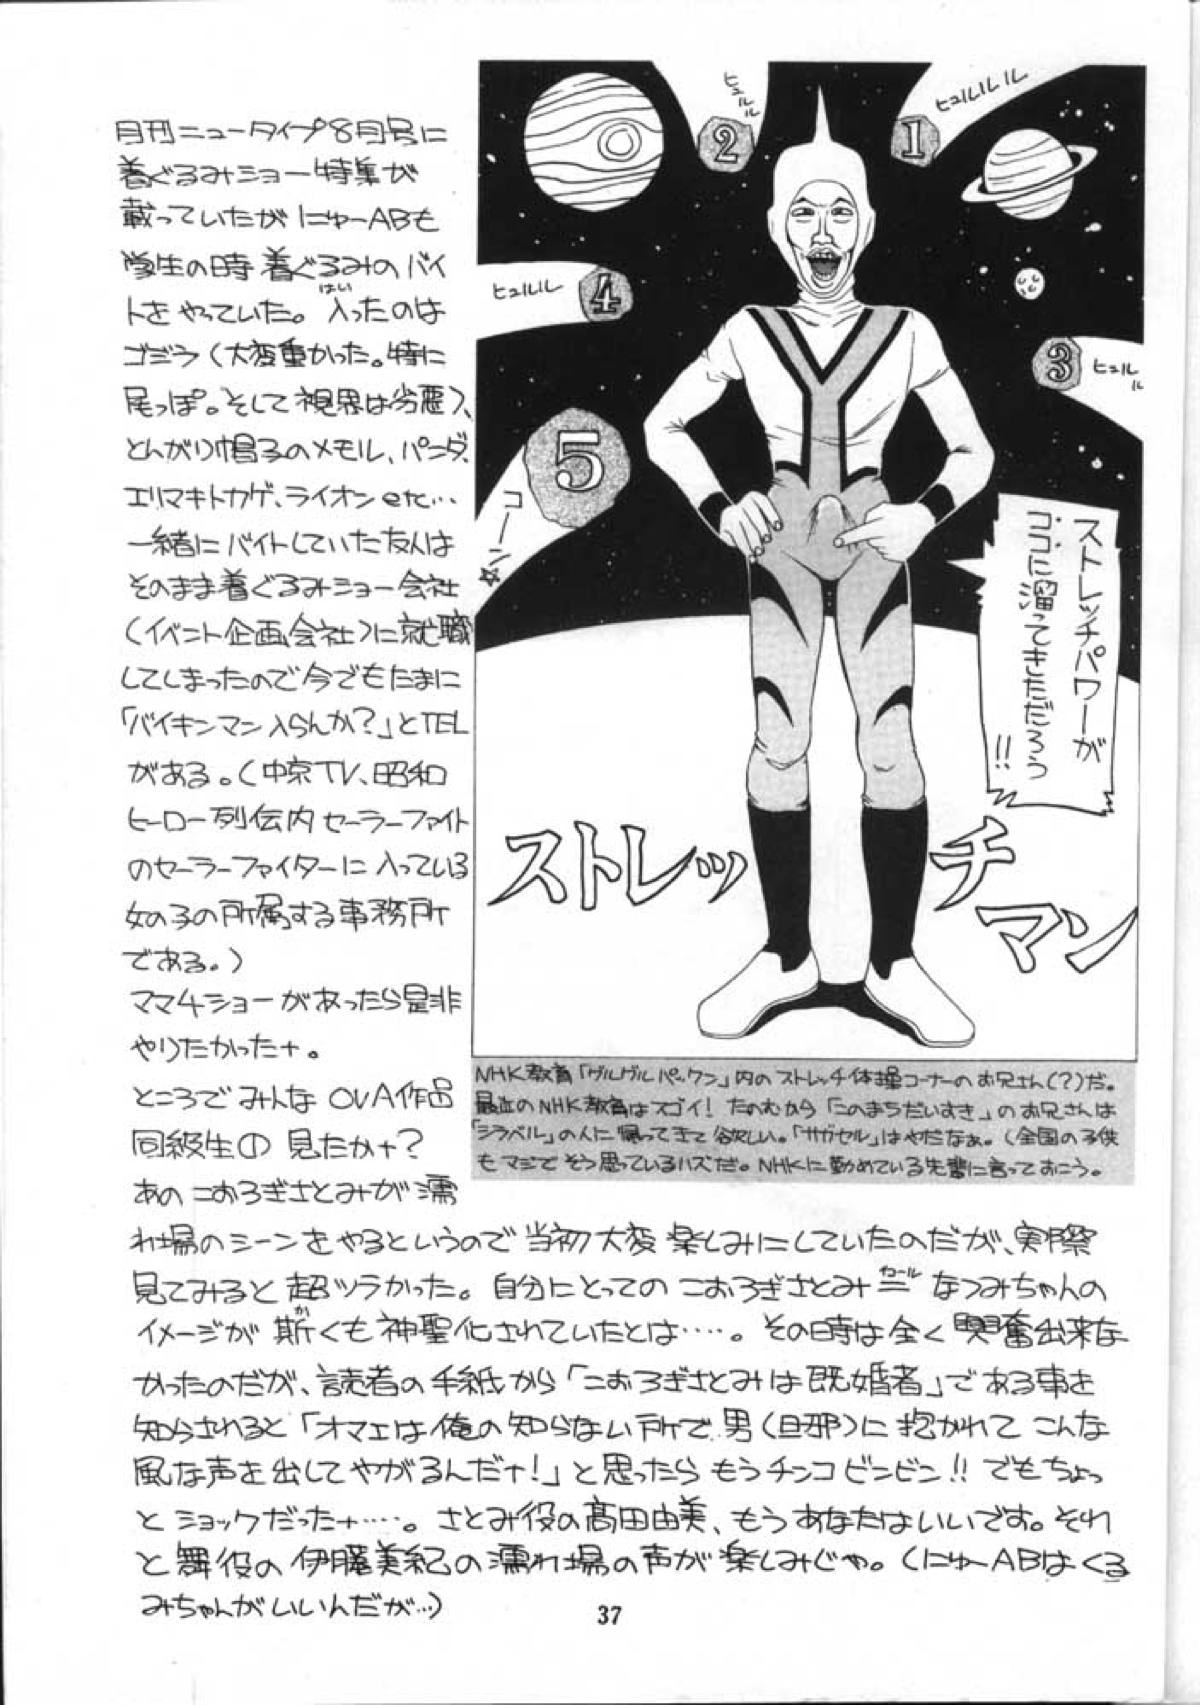 月刊ニュータイプ8月号に
着ぐるみショー特集が
載っていたが にゅーABも
学生の時 着ぐるみのバイ
トをやっていた。入ったのは
はい
ゴジラ(大変重かった。特に
尾っぽ。そして視界は劣悪)、
とんがり帽子のメモル、パンダ、
エリマキトカゲ、ライオン etc…
一緒にバイトしていた友人は
そのまま着ぐるみショー会社
(イベント企画会社)に就職
してしまったので今でもたまに
「バイキンマン入らんか?」とTEL
がある。(中京TV、昭和
ヒーロー列伝内セーラーファイト
のセーラーファイターに入っている
女の子の所属する事務所
である。)
ママ4ショーがあったら是非
やりたかったナ。
ところでみんなOVA作品
同級生の 見たかナ?
あの こおろぎさとみが濡
れ場のシーンをやるというので当初大変楽しみにしていたのだが、実際
見てみると超ツラかった。自分にとってのこおろぎさとみ=なつみちゃんの
イコール
イメージが斯くも神聖化されていたとは‥‥。その時は全く興奮出来な
か
かったのだが、読者の手紙から「こおろぎさとみは既婚者」である事を
知らされると「オマエは俺の知らない所で男(旦那)に抱かれてこんな
風な声を出してやがるんだナ!」と思ったらもうチンコビンビン!!でもちょっ
とショックだったナ‥‥。さとみ役の高田由美、もうあなたはいいです。それ
と舞役の伊藤美紀の濡れ場の声が楽しみじゃ。(にゅーABはくる
みちゃんがいいんだが…)
ヒュルルル
1
ヒュルル
2
ヒュルル
3
ヒュルル
4
コーン☆
5
ストレッチパワーが
ココに溜ってきただろう
!!
ストレッチ
マン
NHK教育「グルグルパックン」内のストレッチ体操コーナーのお兄さん(?)だ。
最近のNHK教育はスゴイ! たのむから「このまちだいすき」のお兄さんは
「シラベル」の人に帰ってきて欲しい。「サガセル」はやだなぁ。(全国の子供
もマジでそう思っているハズだ。NHKに勤めている先輩に言っておこう。
37